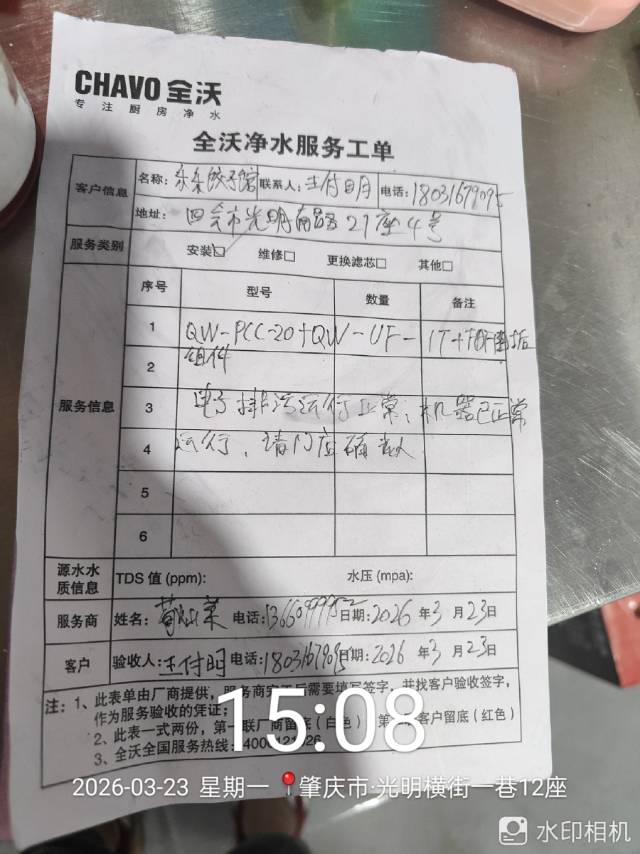 CHAVO 全沃
专注厨房净水
全沃净水服务工单
客户信息 名称: 饺子馆 联系人: 王付明 电话:
地址: 四会市光明南路21座4号
服务类别 安装☑ 维修□ 更换滤芯□ 其他□
服务信息
序号 型号 数量 备注
1 QW-PCC-20+QW-UF-1T+
2 组件
3 电子排污运行正常,机器已正常
4 运行,请门店确认
5
6
源水水质信息 TDS 值 (ppm): 水压 (mpa):
服务商 姓名: 电话: 日期: 2026 年 3 月 23 日
客户 验收人: 王付明 电话: 日期: 2026 年 3 月 23 日
注: 1、此表单由厂商提供, 服务商完 后需要填写签字, 并找客户验收签字,
作为服务验收的凭证;
2、此表一式两份, 第一联厂商留底 (白色) 第 客户留底 (红色)
3、全沃全国服务热线: 400
15:08
2026-03-23 星期一 肇庆市·光明横街一巷12座
水印相机